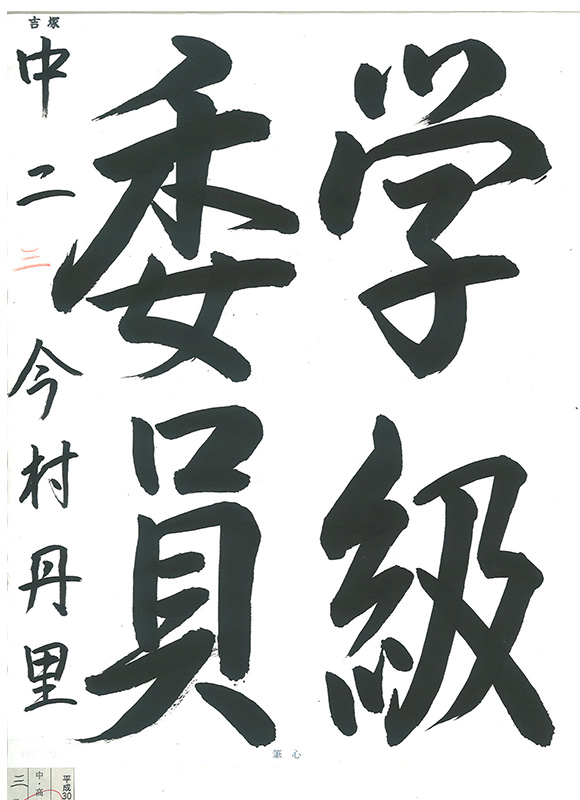 学級
委員
吉塚
中二
三
今村丹里
心筆
平成30
中・高
三